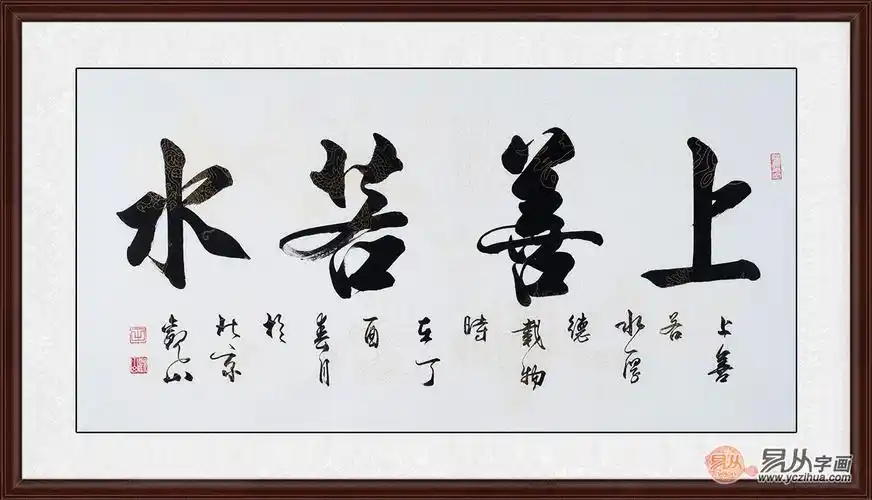 上善若水
上善
若
水厚
德
載物
時
在丁
酉
春月
於
北京
観山
易从字画
www.yczihua.com